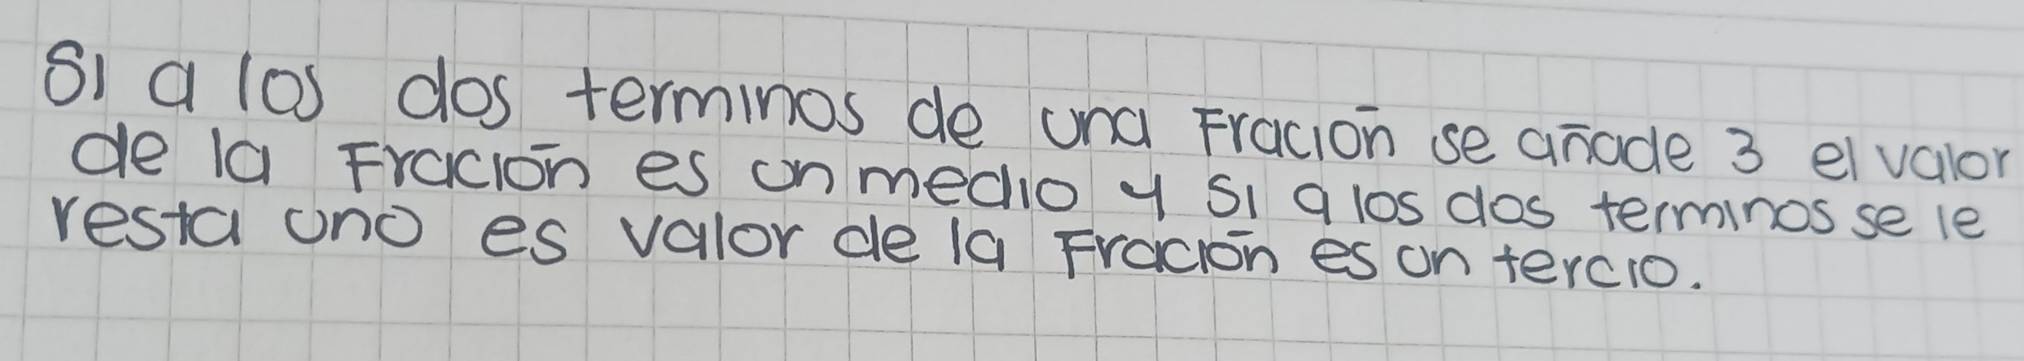 Si a los dos terminos de una Fración se añade 3 el valor
de la Fración es un medio y si a los dos terminos se le
resta uno es valor de la Fración es un tercio.